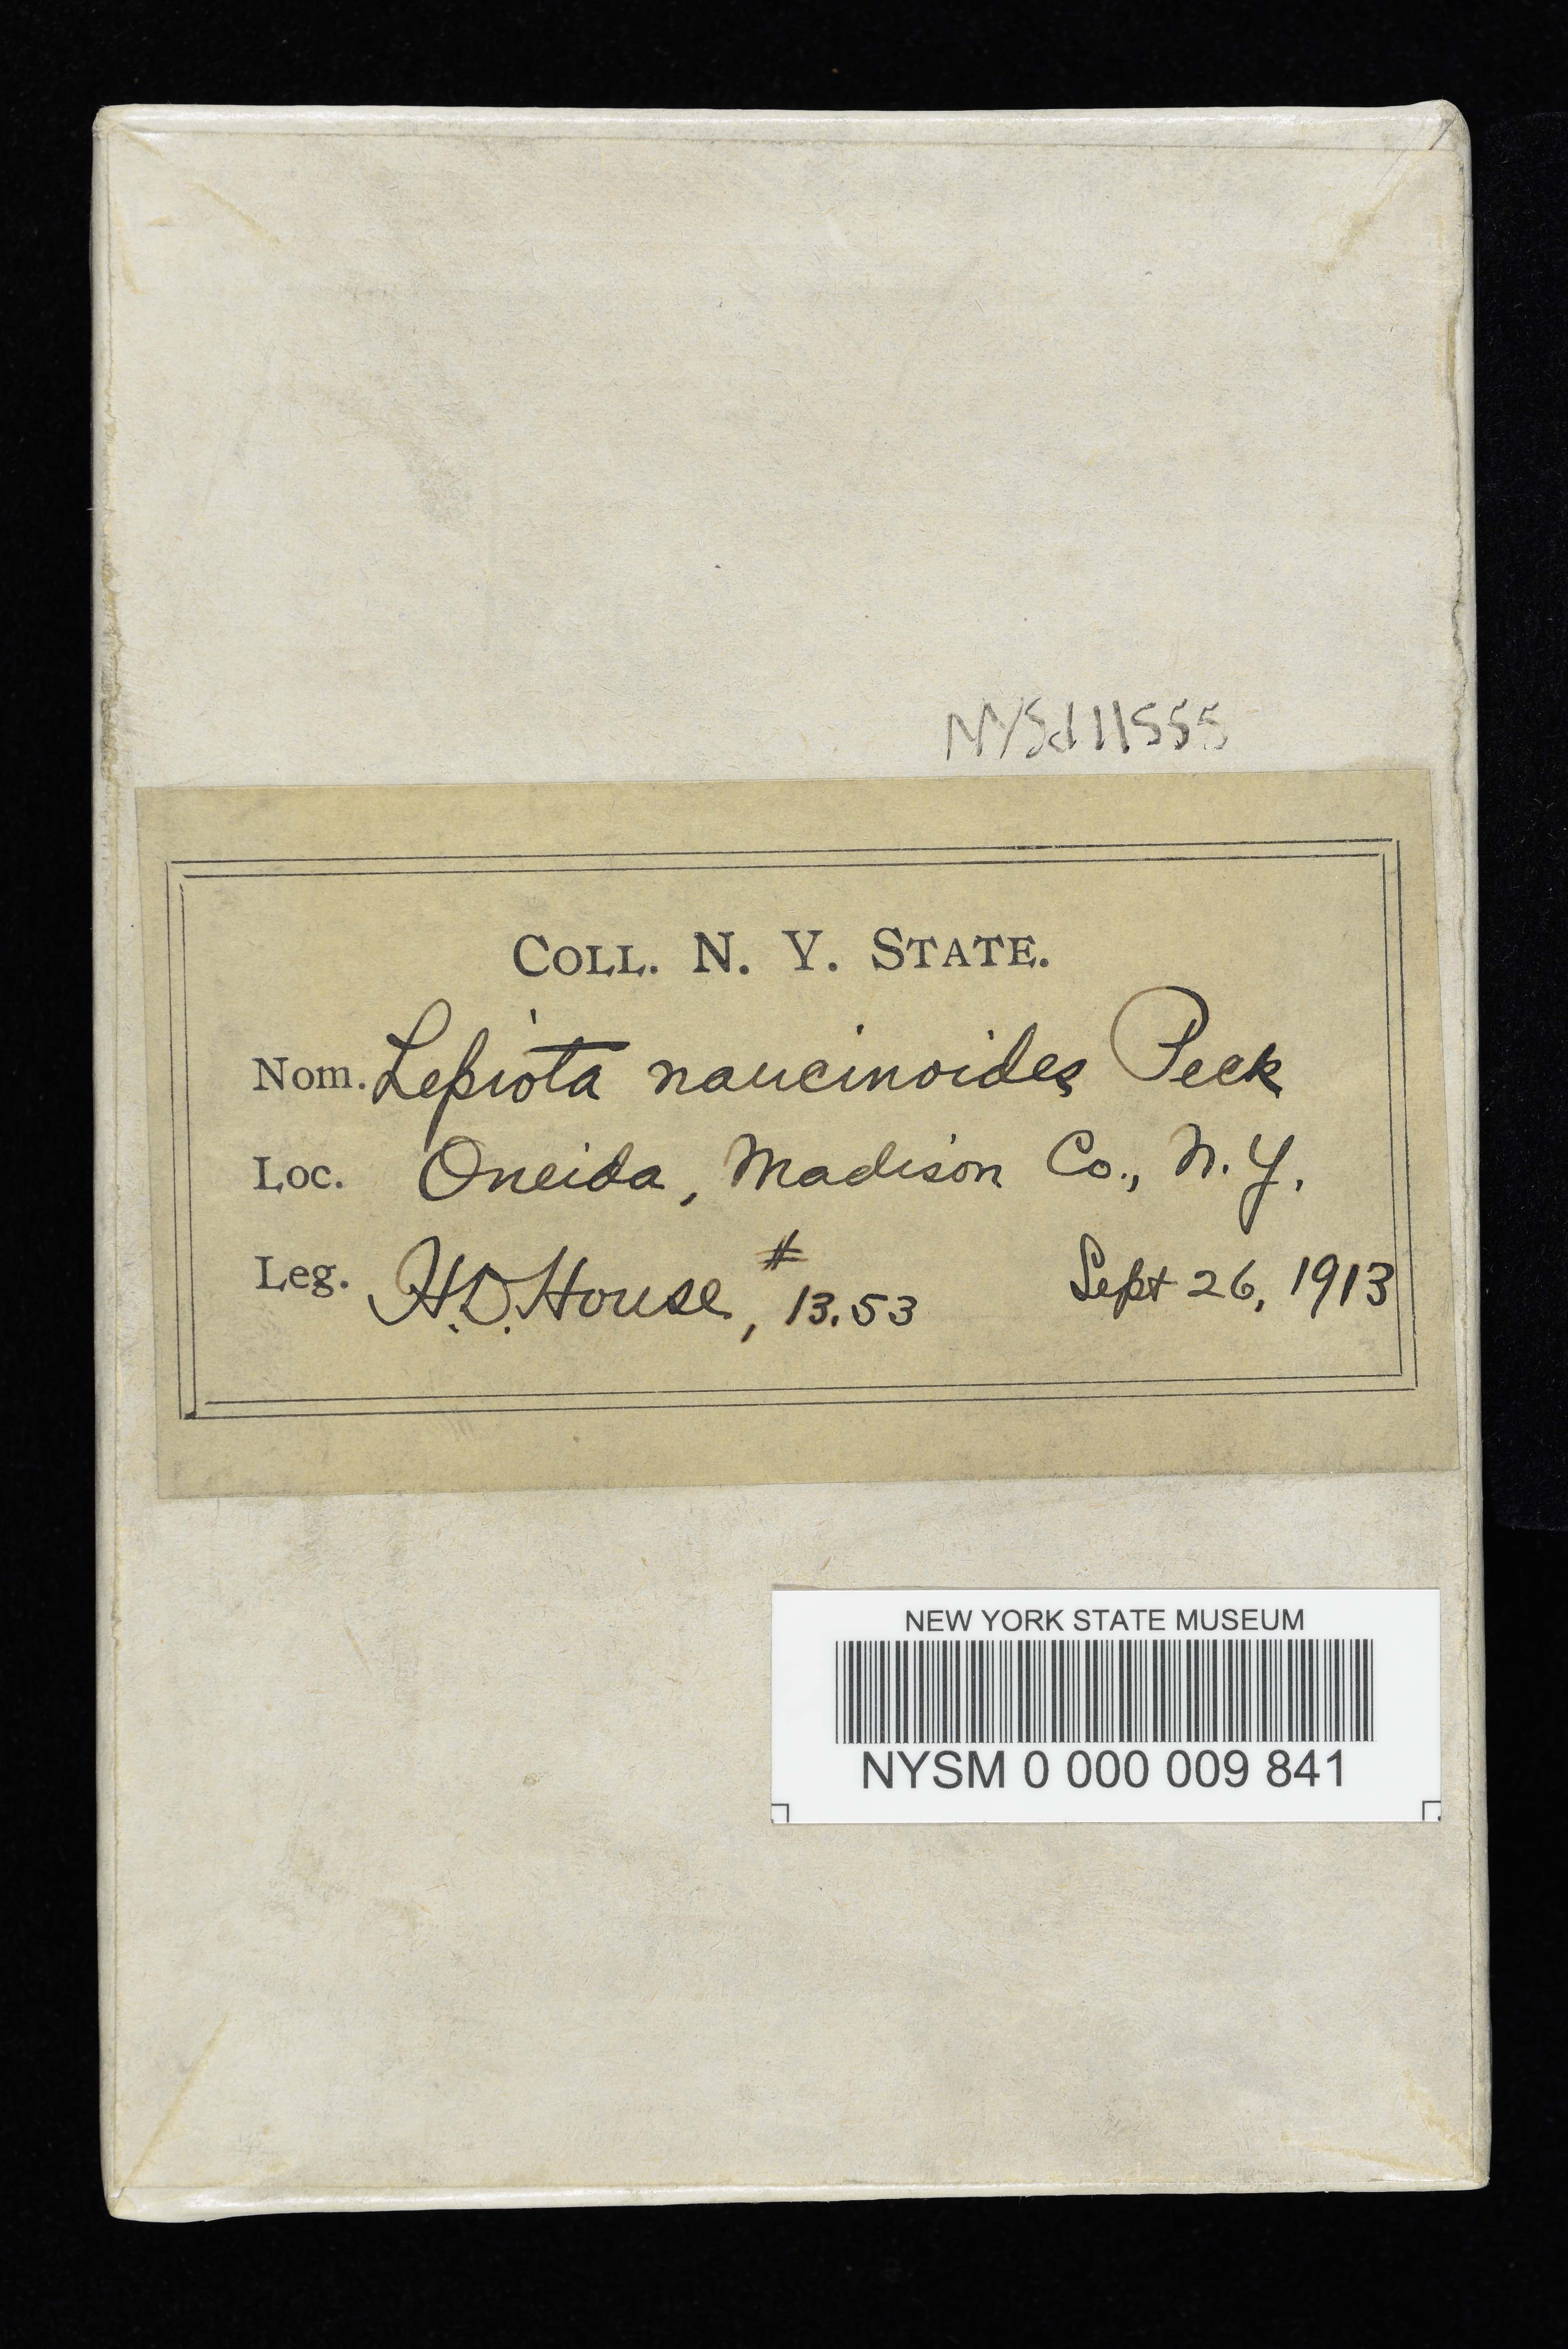 NYSd11555
COLL. N. Y. STATE.
Nom. Lepiota naucinoides Peck
Loc. Oneida, Madison Co., N.Y.
Leg. H.D. House, # 13.53 Sept 26, 1913
NEW YORK STATE MUSEUM
NYSM 0 000 009 841